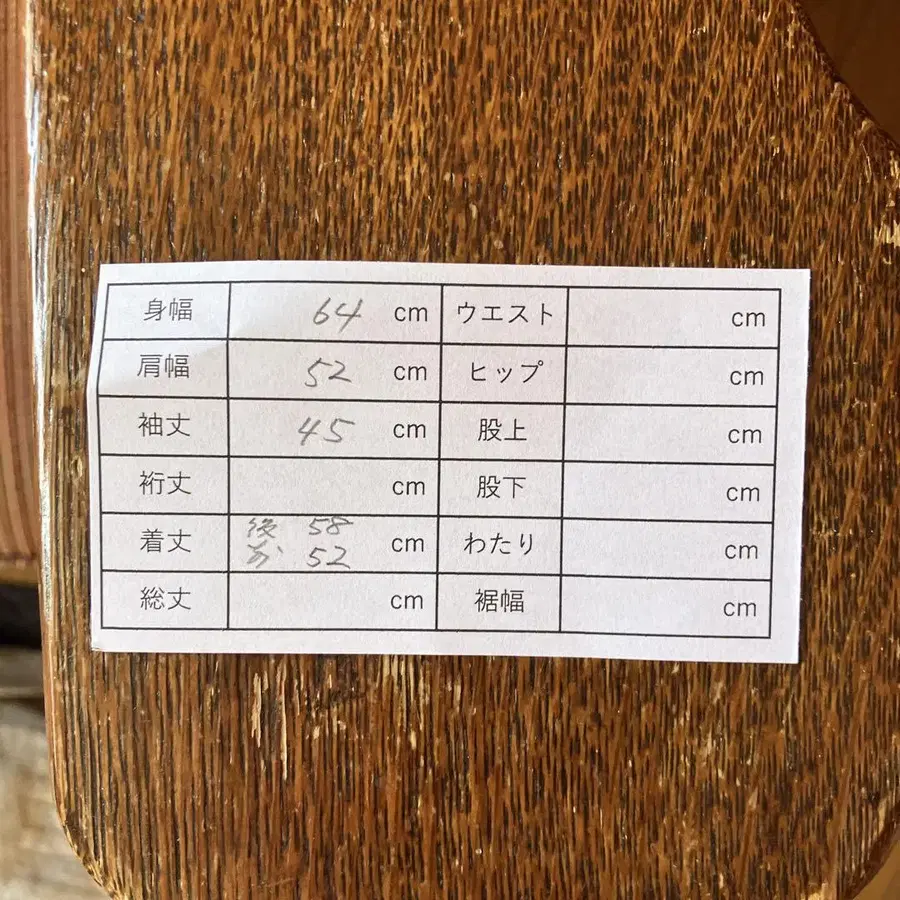 身幅 64 cm ウエスト cm
肩幅 52 cm ヒップ cm
袖丈 45 cm 股上 cm
裄丈 cm 股下 cm
着丈 後 58 前 52 cm わたり cm
総丈 cm 裾幅 cm